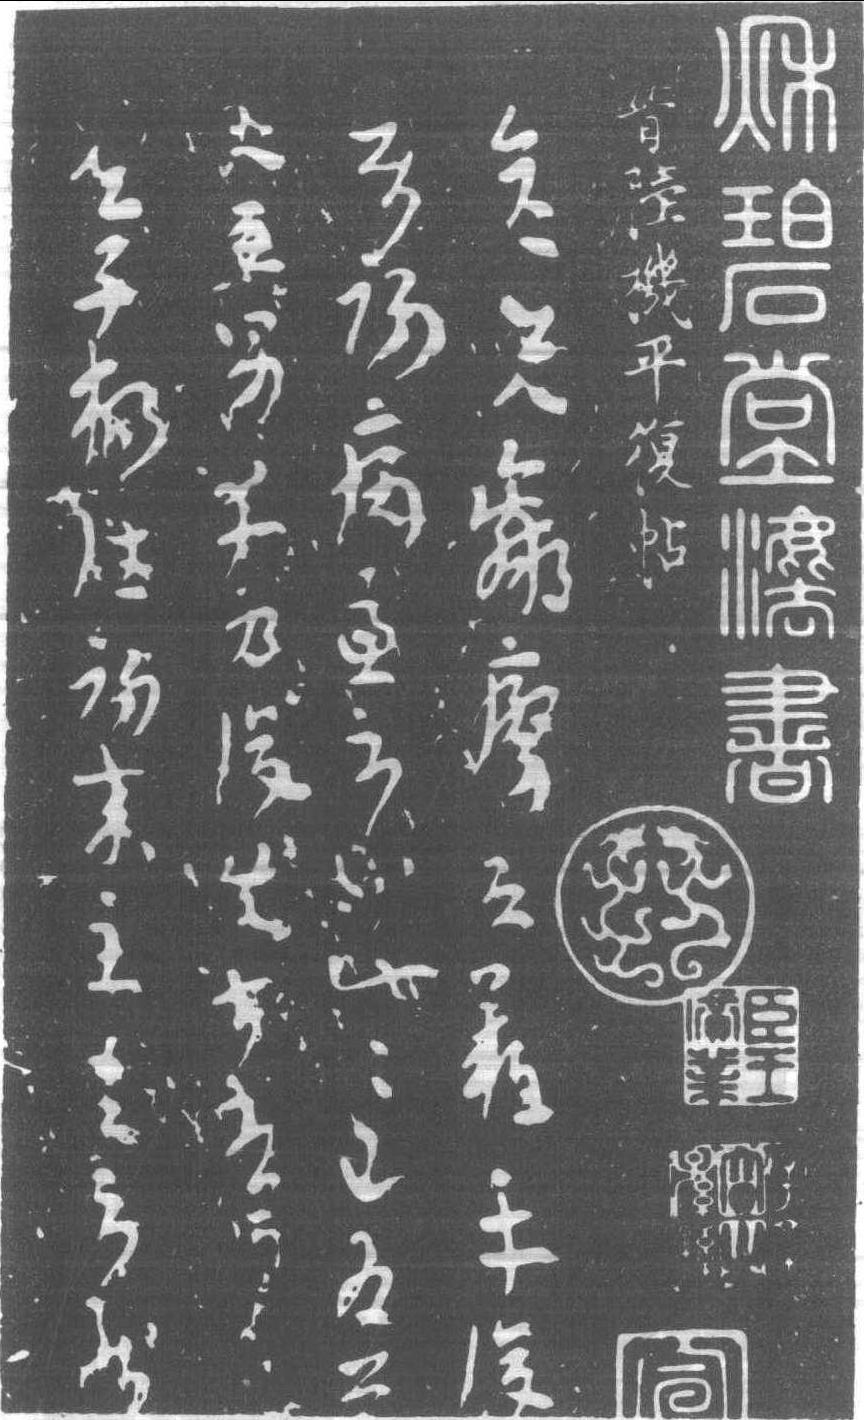 秌碧堂灋書
晉陸機平復帖
彦先羸瘵恐難平復
屬初病慮不止此〻已為
使唯男幸為復失前憂耳
吳子楊往初來主吾不能